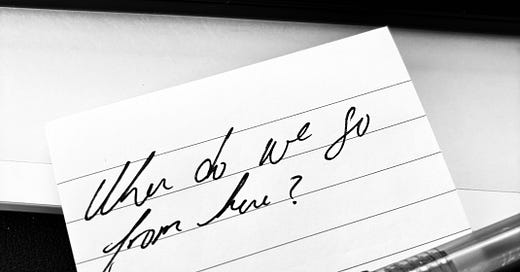 Where do we go
from here?